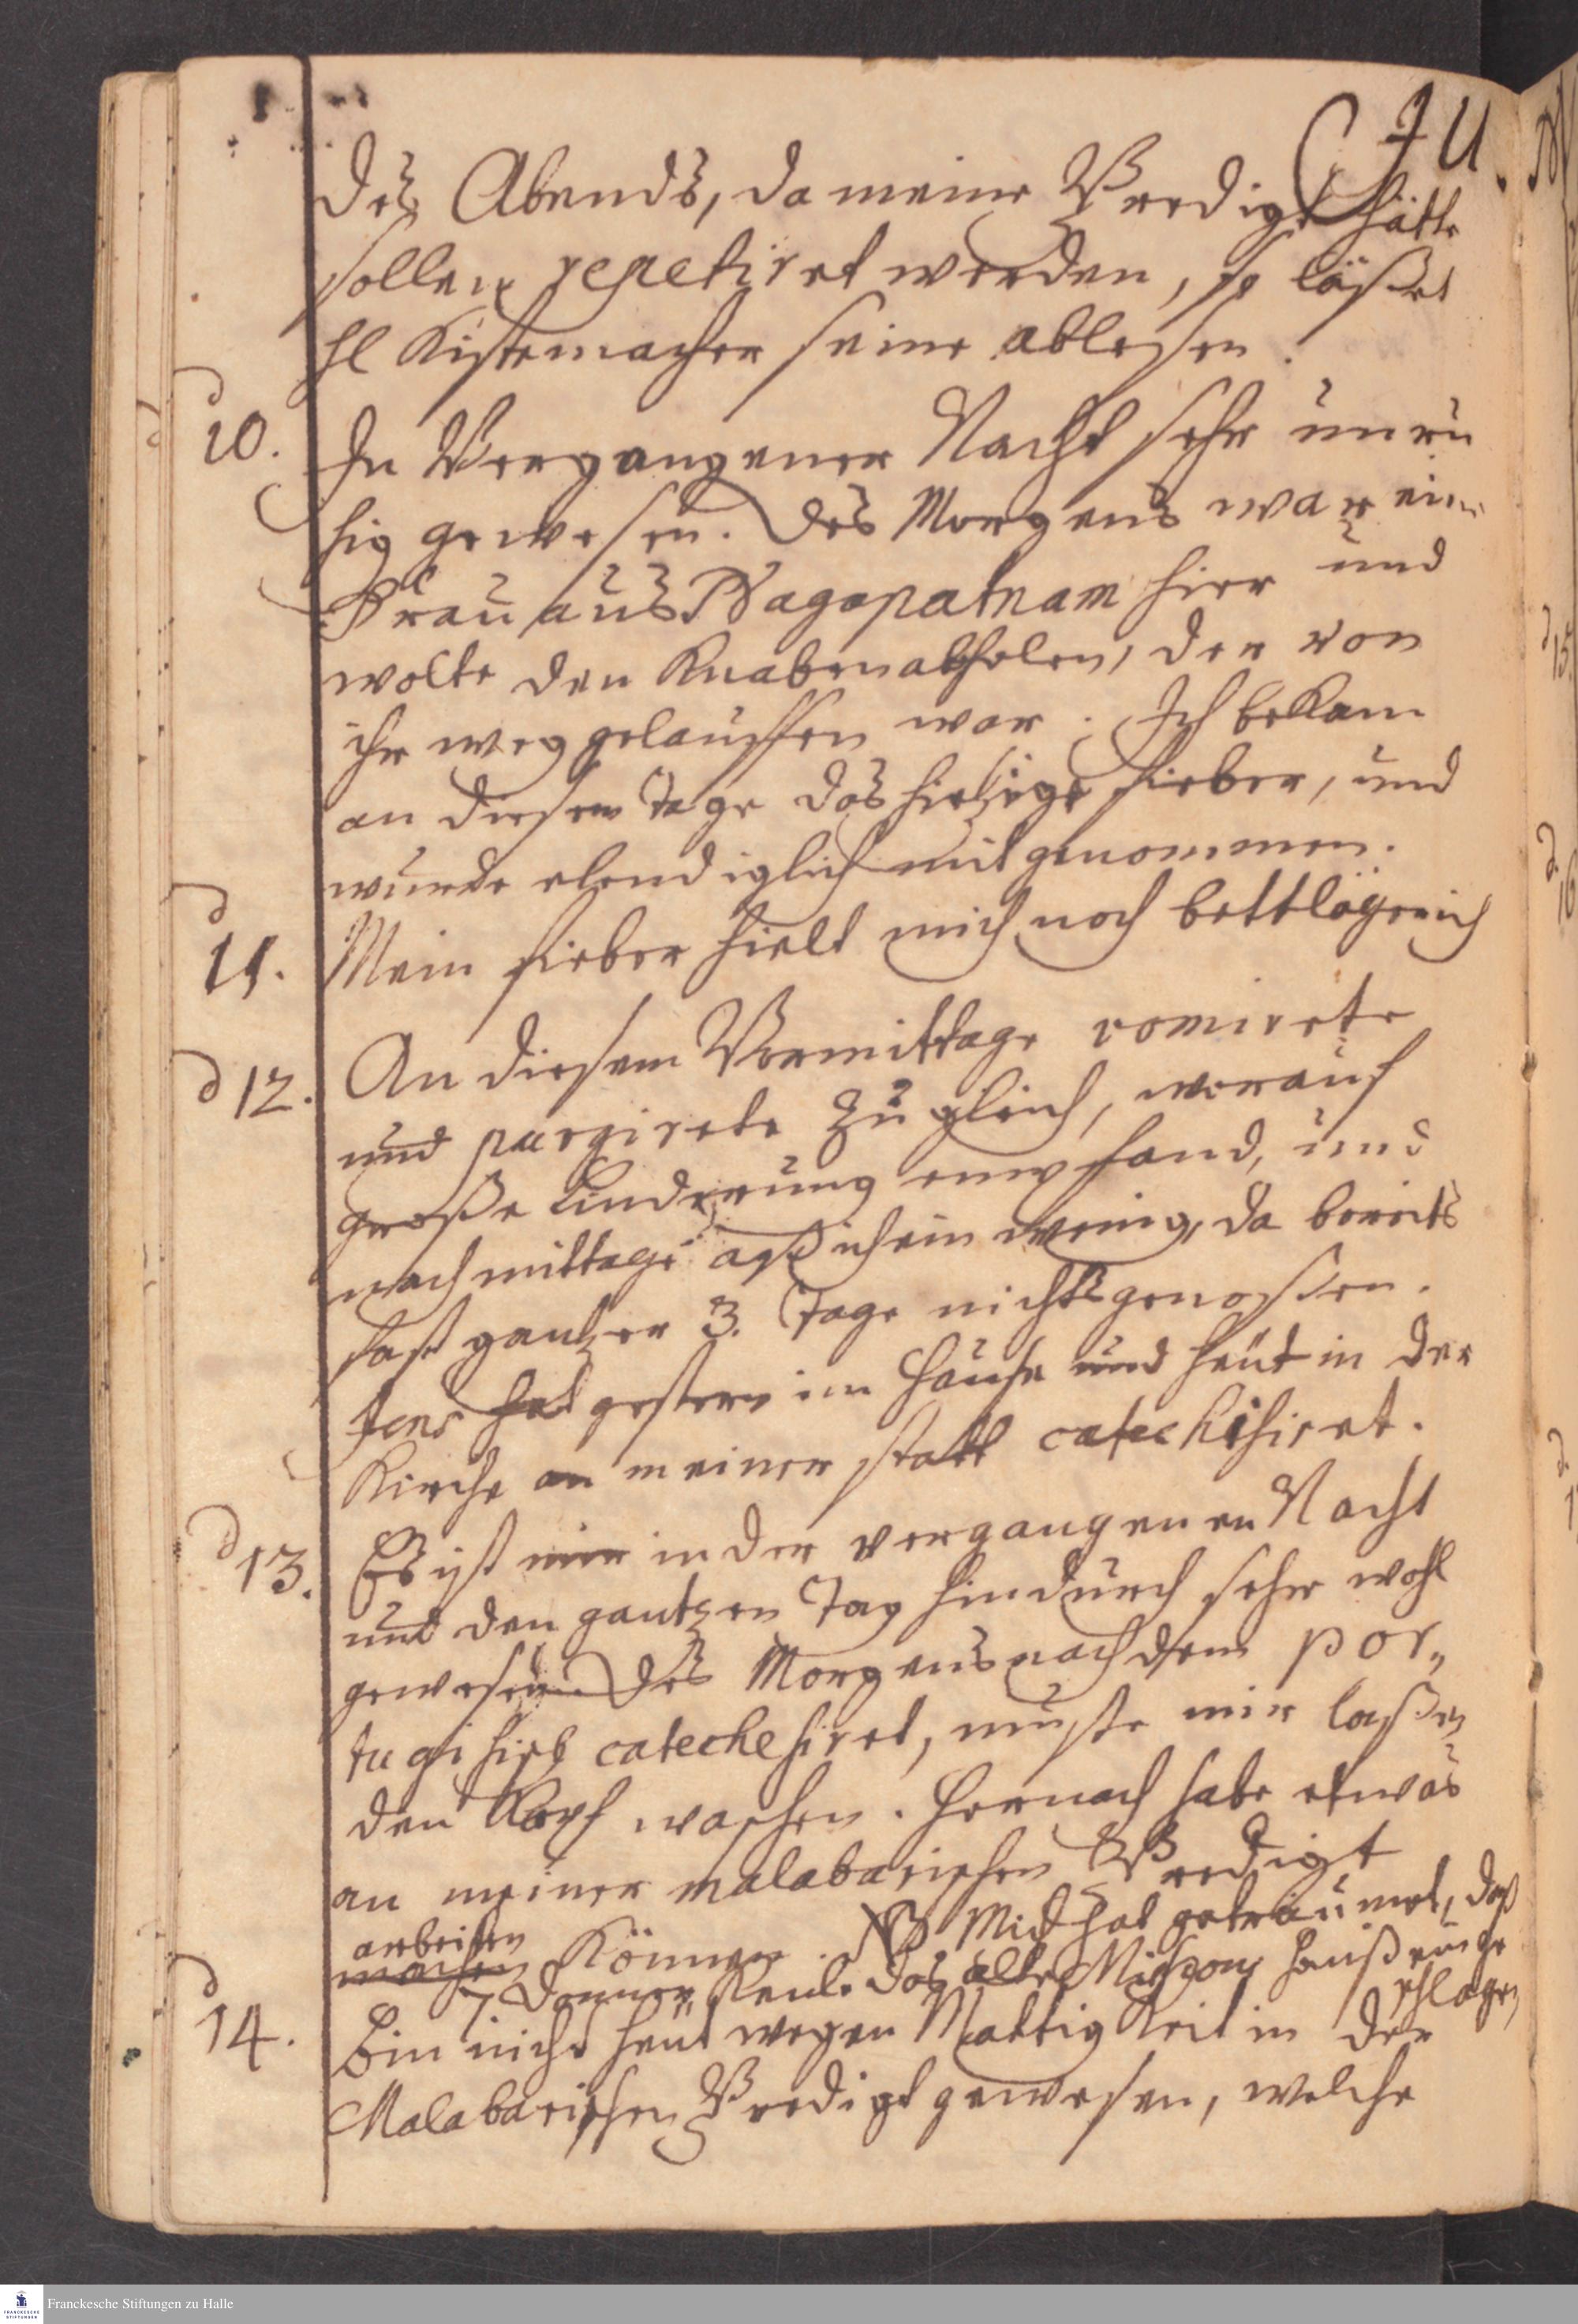 JU
des Abends, da meine Predigt hätte
sollen repetiret werden, so läßet
H Kistemacher seine ablesen.
d 10. In Vergangener Nacht sehr unru
hig gewesen. Des Morgens war eine
Frau aus Nagapatnam hier und
wolte den Knaben abholen, der von
ihr weggelauffen war. Ich bekam
an diesem Tage das hitzige fieber, und
wurde elendiglich mitgenommen.
d 11. Mein fieber hielt mich noch bettlägerich
d 12. An diesem Vormittage vomirete
und purgirete zugleich, worauf
große Linderung empfand, und
nachmittags aß ich ein wenig, da bereits
fast gantzer 3. Tage nichts genoßen.
hat gestern im Hause und heut in der
Kirche an meiner statt catechisiret.
d 13. Es ist mir in der vergangenen Nacht
und den gantzen Tag hindurch sehr wohl
gewesen. Des Morgens nachdem por„
tugisisch catechesiret, muste mir laßen
den Kopf waschen. Hernach habe etwas
an meiner malabarischen Predigt
arbeiten
machen können. NB Mich hat geträumet, daß
7 Donner Keule das alte Missions Hauß einge
schlagen
d 14. Bin nicht heut wegen Mattigkeit in der
Malabarischen Predigt gewesen, welche
Franckesche Stiftungen zu Halle